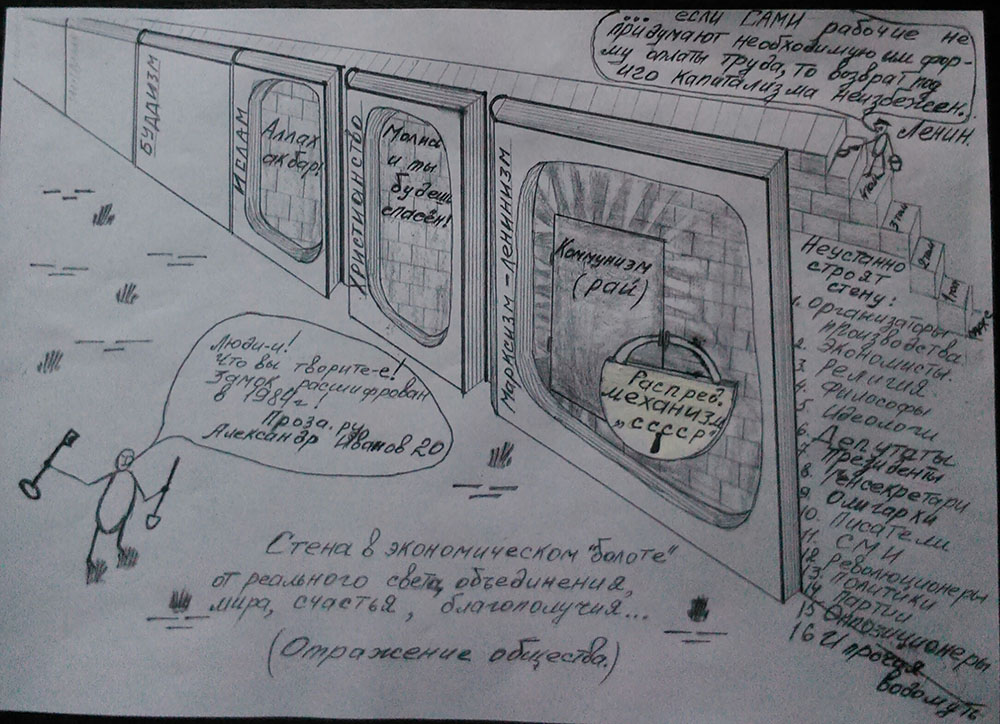 ...если САМИ рабочие не
придумают необходимую им фор-
му оплаты труда, то возврат под
иго капитализма неизбежен.
Ленин.
БУДДИЗМ
ИСЛАМ
Аллах
акбар!
Христионство
Молись
и ты
будешь
спасён!
Марксизм - Ленинизм
Коммунизм
(рай)
Распред.
механизм
„ССССР"
4 этап
3 этап
2 этап
1 этап
Неустанно
строят
стену:
1. Организаторы
производства.
2. Экономисты.
3. Религия.
4. Философы
5. Идеологи
6. Депутаты
7. Президенты
8. Генсекретари
9. Олигархи
10. Писатели
11. СМИ
12. Революционеры
13. Политики
14. Партии
15 Оппозиционеры
16 И прочая
водомуть
Люди-и!
Что вы творите-е!
Замок расшифрован
в 1984г!
Проза.ру
Александр Иванов 20
Стена в экономическом "болоте"
от реального света, объединения,
мира, счастья, благополучия...
(Отражение общества.)